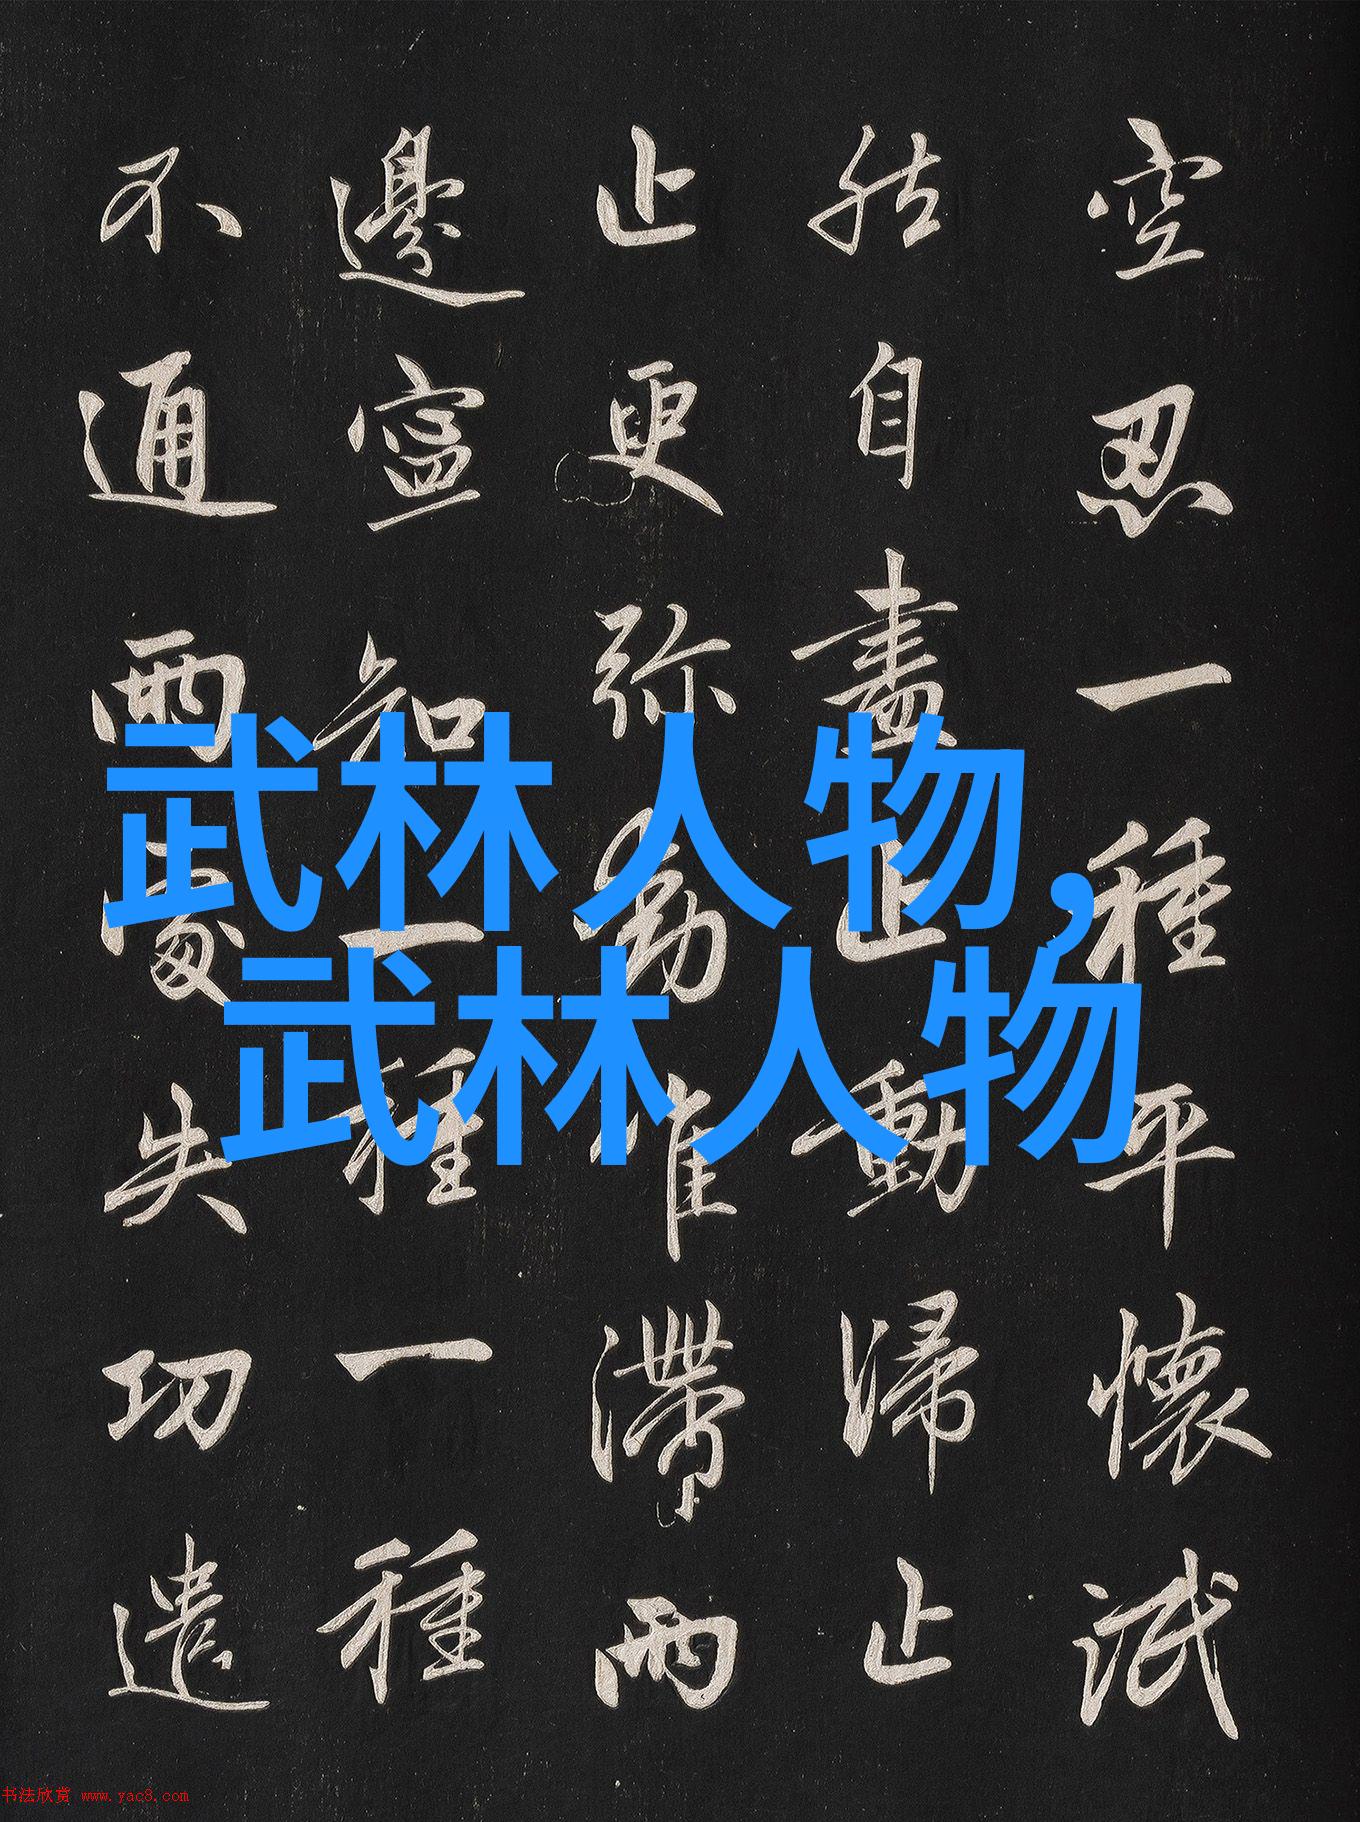 空忍一種平懷泯
然自盡止動歸止
止更弥動唯滯兩
邊寧知一種一種
不通兩處失功遣
武林人物,
武林人物
书法欣赏 www.yac8.com